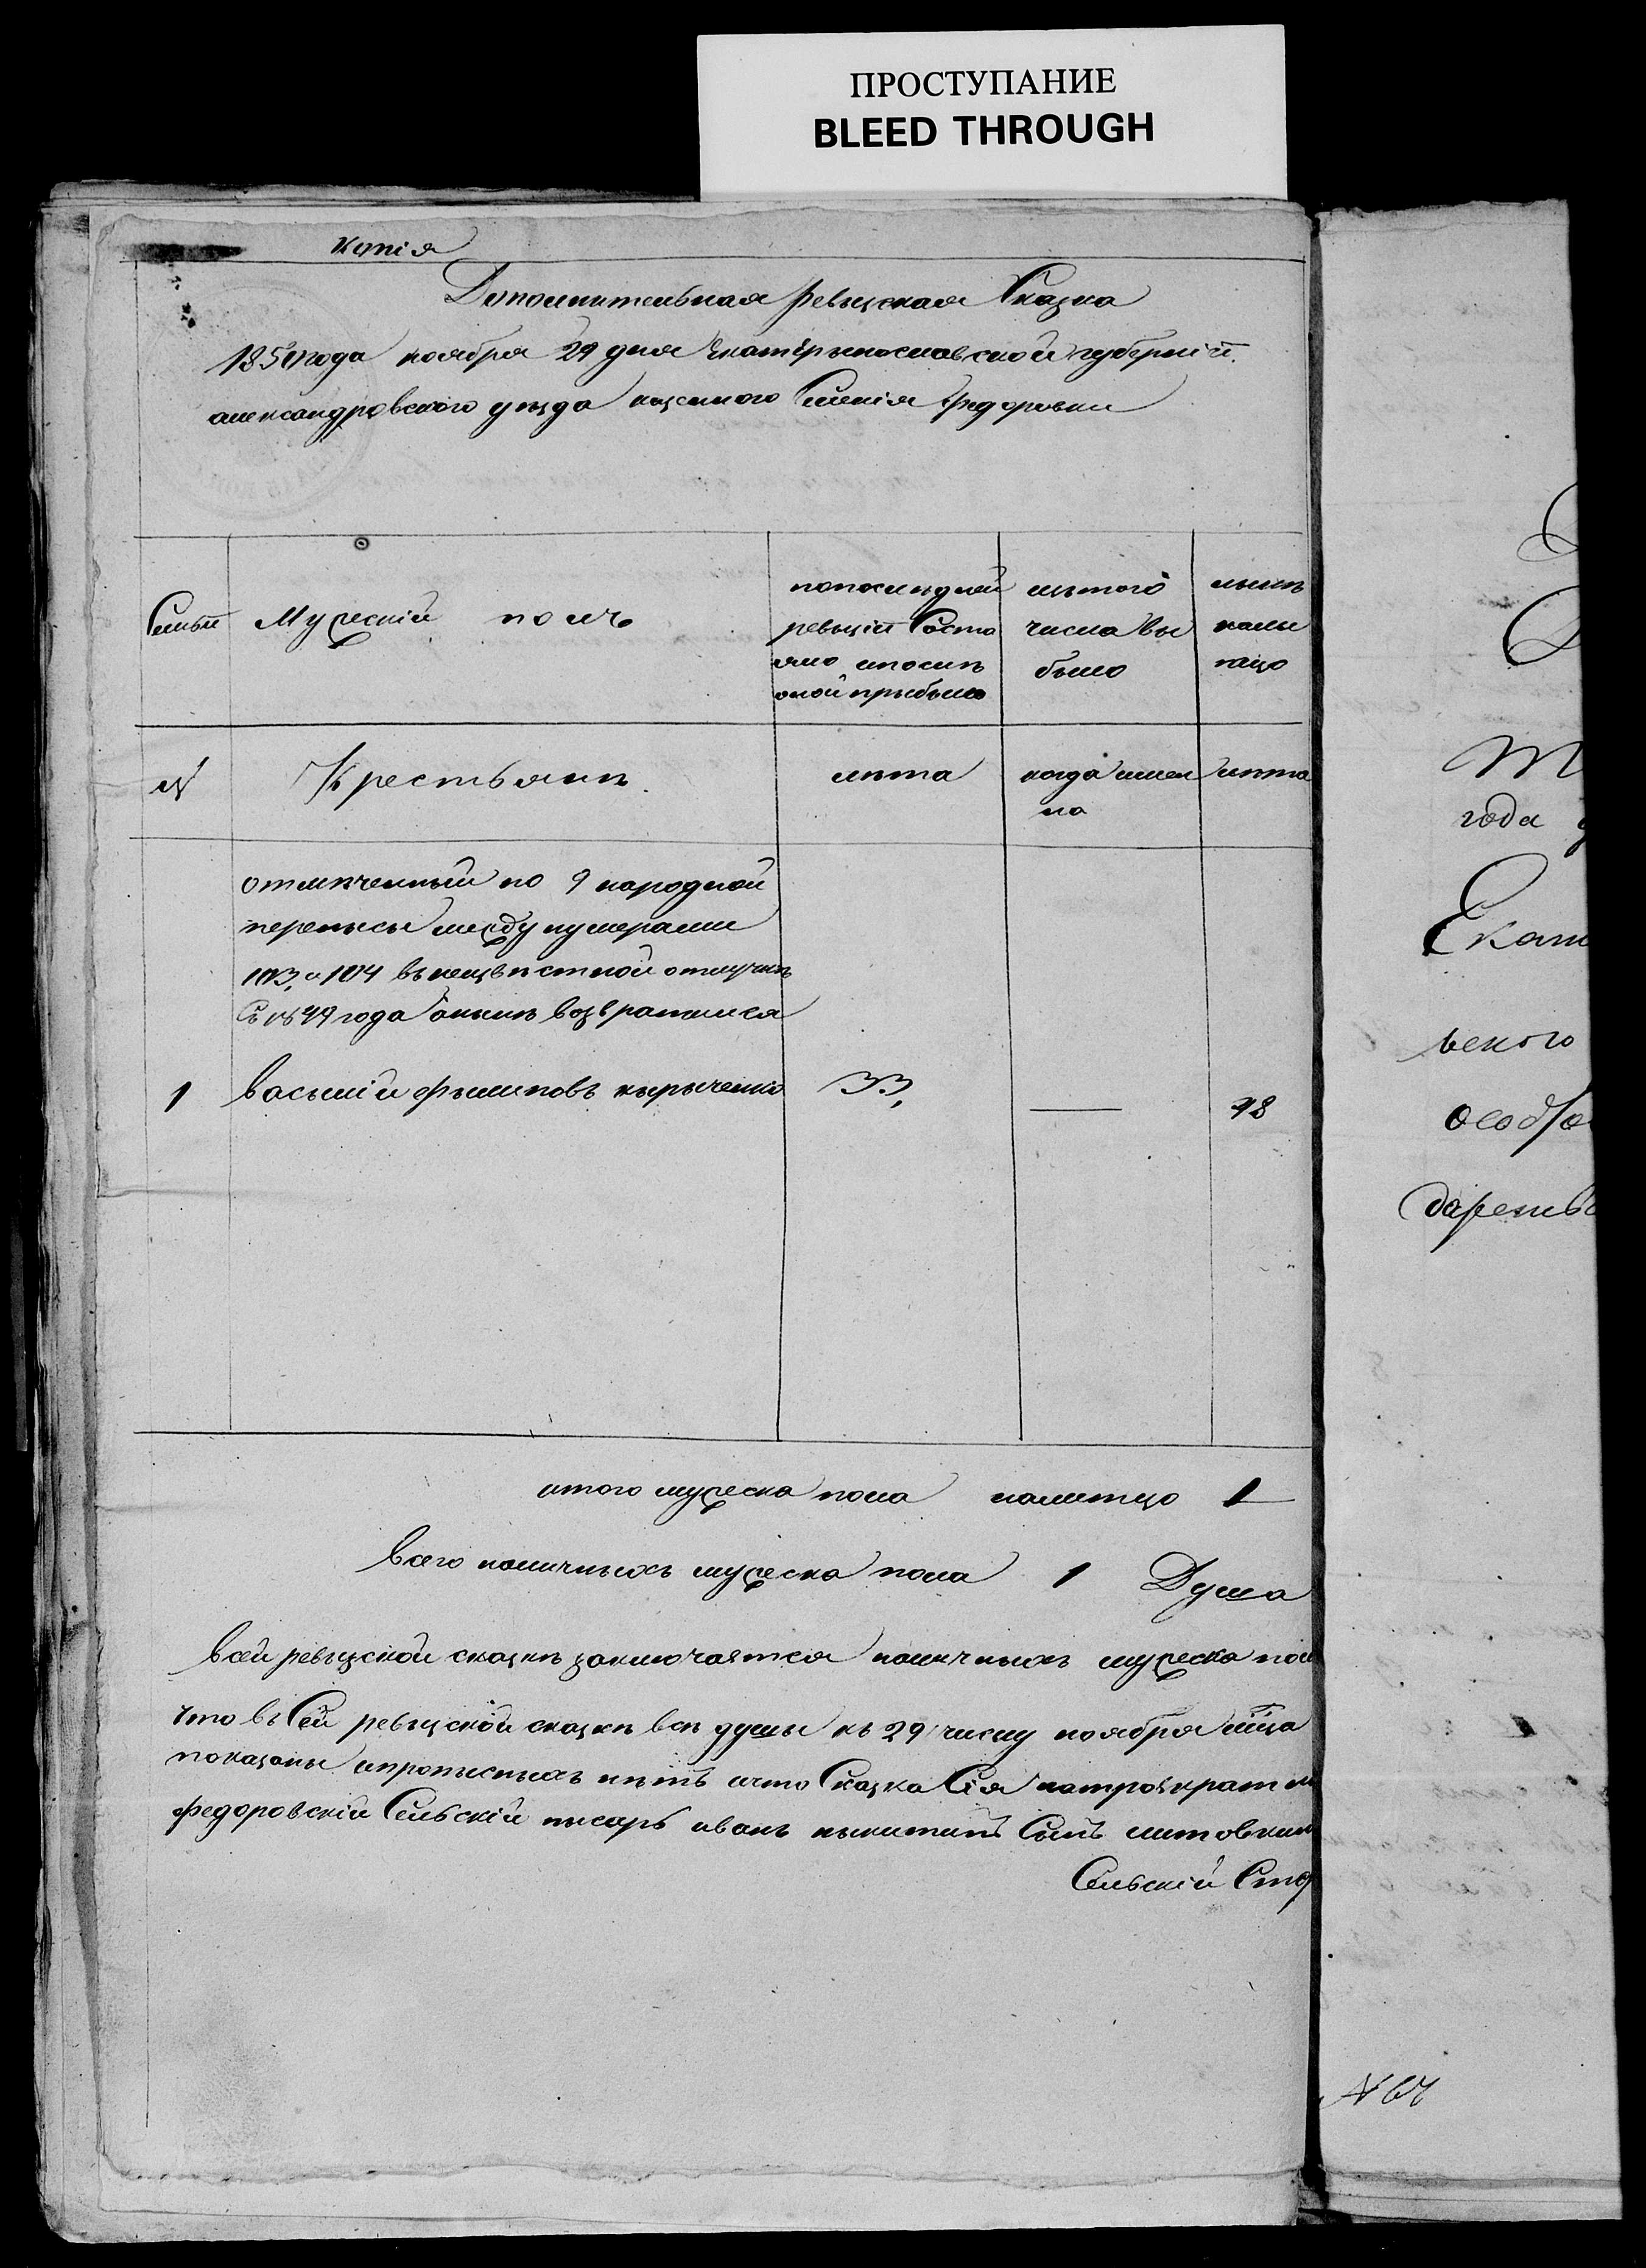 ПРОСТУПАНИЕ
BLEED THROUGH
копія
Дополнительная ревызская Сказка
1850 года ноября 29 дня Екатерынославской губерніи
александровского уезда казенного Селенія Федоровки
Семьи Мужескій полъ
попоследней ревызіи Состояло ипосле оной прыбыло
изтого числа выбыло
ныне налыцо
№ Крестьяне лета когда имен но лета
отмеченный по 9 народной
переписы между нумерами
103, и 104 внеизвестной отлучке
Съ 1849 года оныне возвратился
1 василій филиповъ кырыченко 33, — 48
итого мужеска пола налитцо 1
Всего наличныхъ мужеска пола 1 Душа
Всей ревызской сказке заключается наличныхъ мужеска пола
Что въ Сей ревызской сказке все душы къ 29 числу ноября м͞ца
показаны ипрописныхъ нетъ ичто Сказка Сія
федоровскій Сельскій писарь иванъ никитинъ Сынъ
Сельскій Ста
года
Екат
ьского
особо